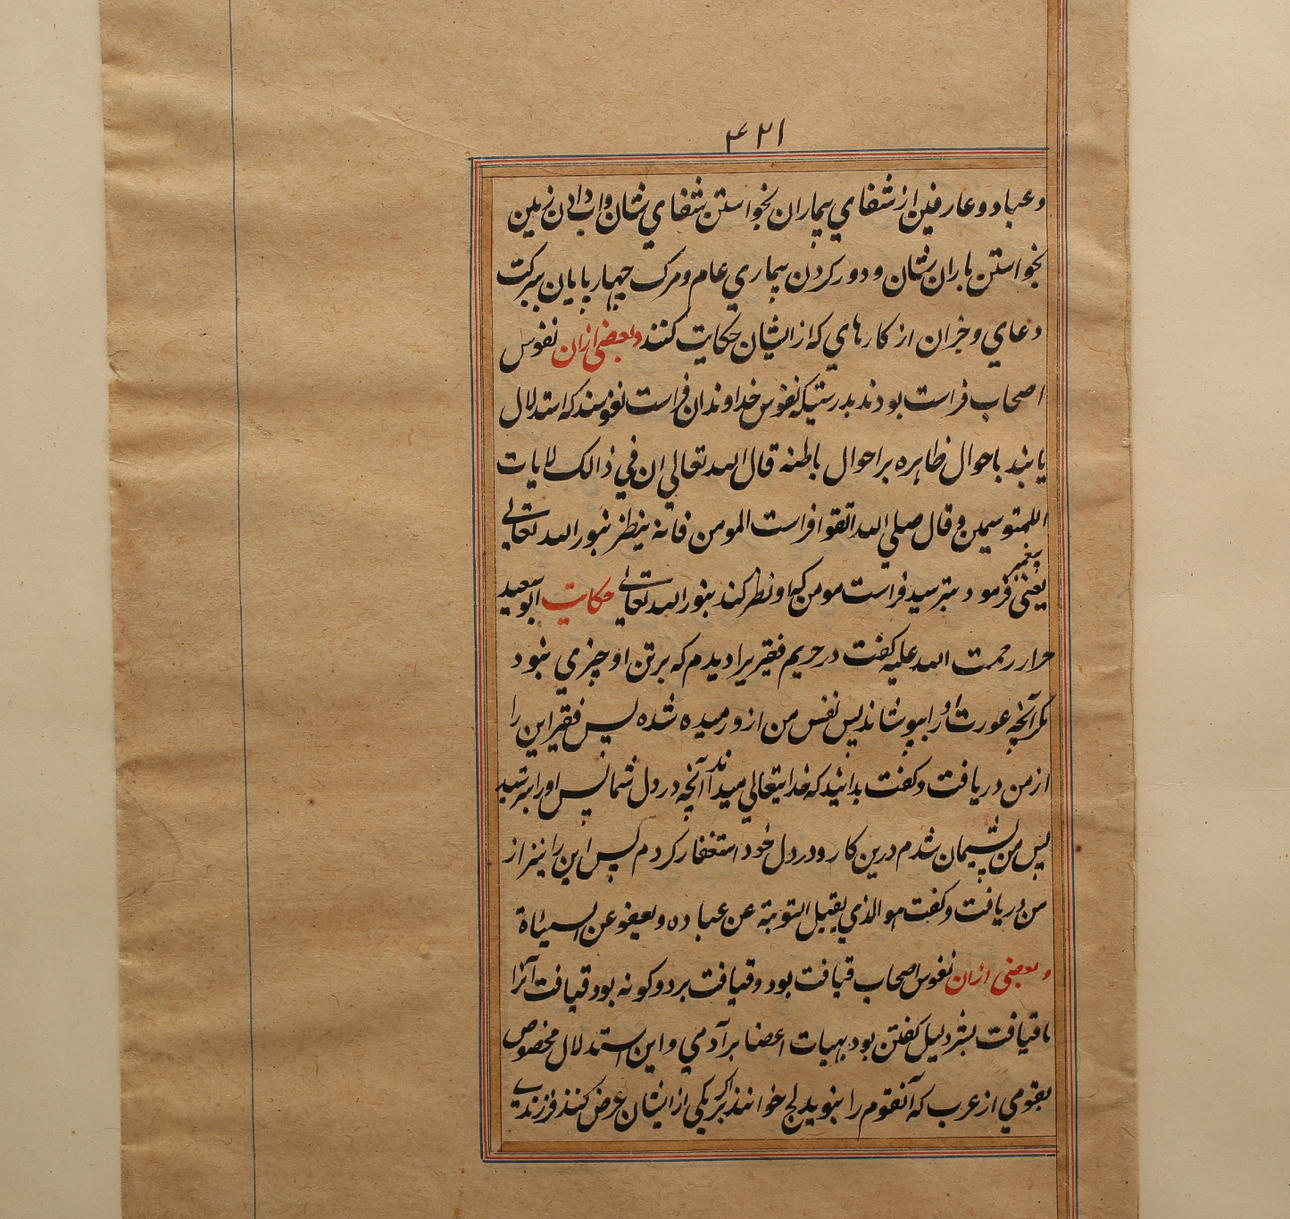 ۴۲۱
و عباد و عارفین از شفاي بیماران بخواستن شفاي نشان و اب دادن زمین
بخواستن باران نشان و دور کردن بیماري عام و مرک چهارپایان ببرکت
دعاي و جزان از کارهاي که از ایشان حکایت کنند و بعضی ازان نفوس
اصحاب فراست بودند بدرستیکه نفوس خداوندان فراست نفوسند که استدلال
یابند باحوال ظاهره براحوال باطنه قال الله تعالي ان في ذالک لایات
اللمتوسیمن و قال صلي الله اتقوا فراست المومن فانه ینظر بنور الله تعالی
یعنی پیغمبر فرمود بترسید فراست مومن که او نظر کند بنور الله تعالی حکایت ابوسعید
حرار رحمت الله علیه کفت در حریم فقیریرا دیدم که برتن او چیزي نبود
مکر آنچه عورت او را بپوشاند پس نفس من ازو رمیده شده پس فقیر این را
از من دریافت و کفت بدانید که خدایتعالي میداند آنچه در دل شما پس او را بترسید
پس من پشیمان شدم درین کار و در دل خود استغفار کردم پس این را نیز از
من دریافت و کفت هو الذي یقبل التوبة عن عباده و یعفو عن السیئاة
و بعضی ازان نفوس اصحاب قیافت بود و قیافت بر دو کونه بود قیافت آنرا
قیافت بشر دلیل کفتن بود بهیات اعضا برآدمي و این استدلال مخصوص
بقومي از عرب که آنقوم را بنویدلج خوانند اکر یکي از ایشان عرض کنند فرزندی